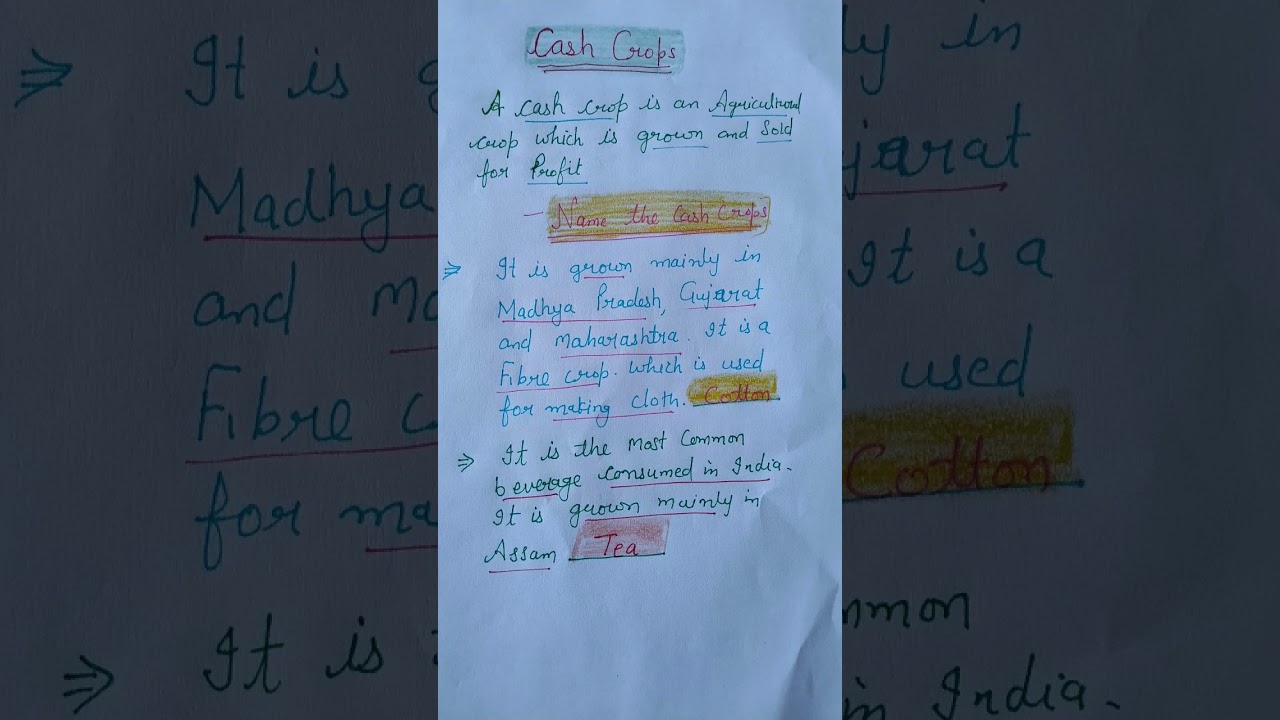 Cash Crops
A cash crop is an Agricultural
crop which is grown and Sold
for Profit
- Name the Cash Crops
⇒ It is grown mainly in
Madhya Pradesh, Gujarat
and maharashtra. It is a
Fibre crop. which is used
for making cloth. Cotton
⇒ It is the most Common
beverage consumed in India.
It is grown mainly in
Assam Tea